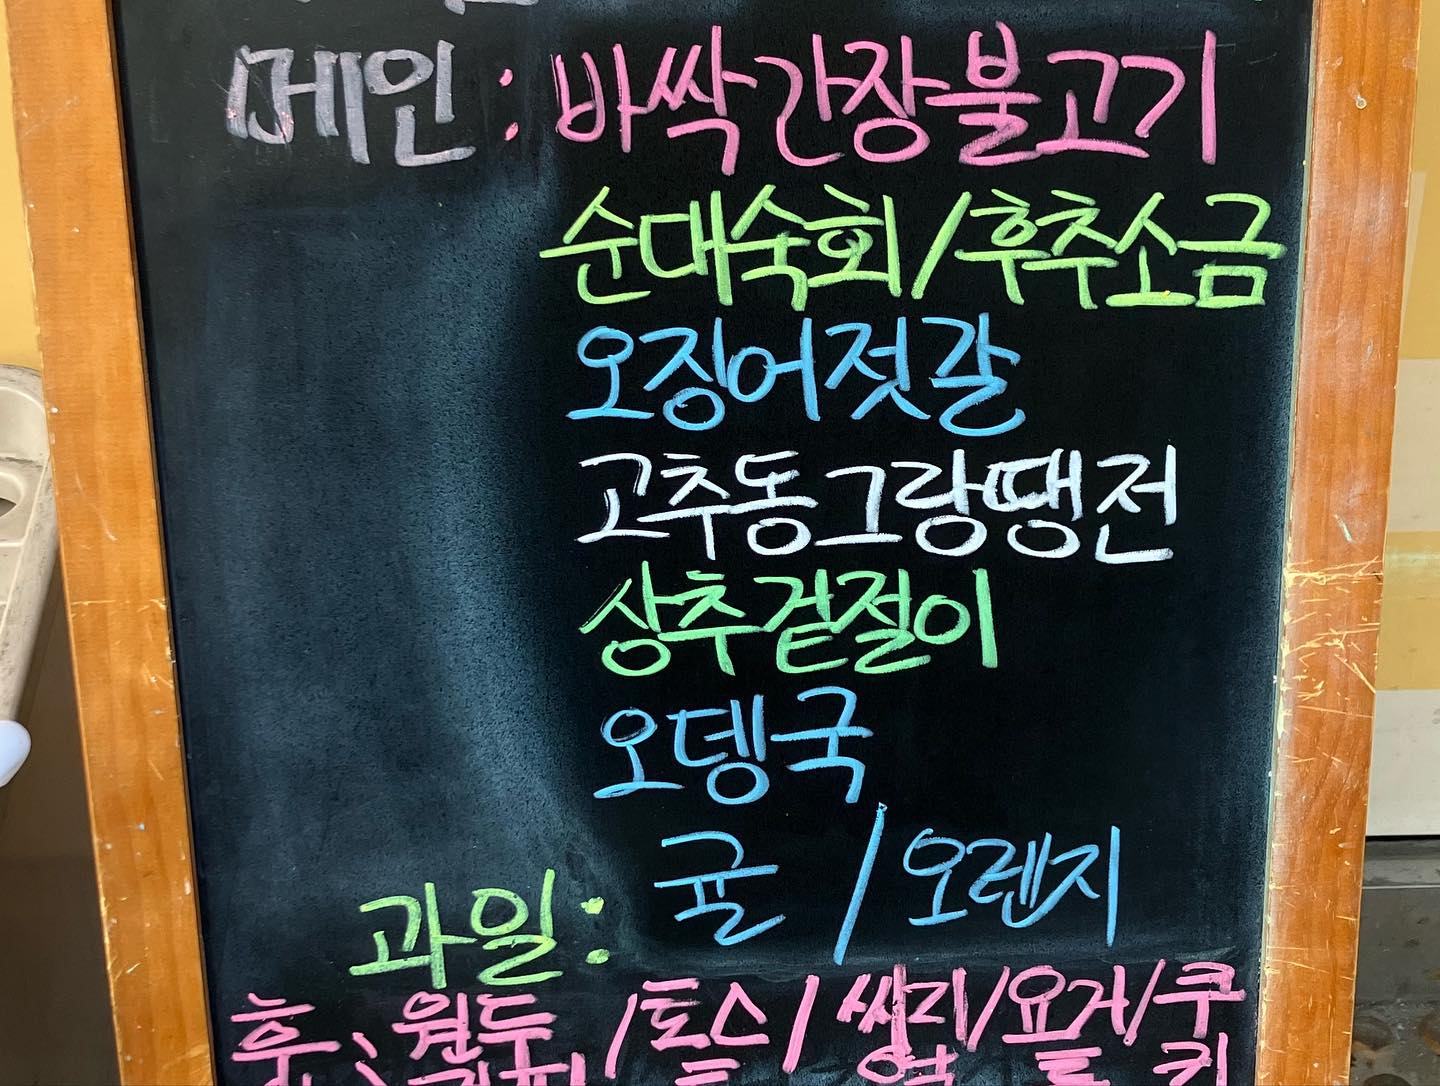 메인 : 바싹간장불고기
순대숙회/후추소금
오징어젓갈
고추동그랑땡전
상추겉절이
오뎅국
과일: 귤 / 오렌지
원두 / 토스 / 씨리 / 요거 / 쿠